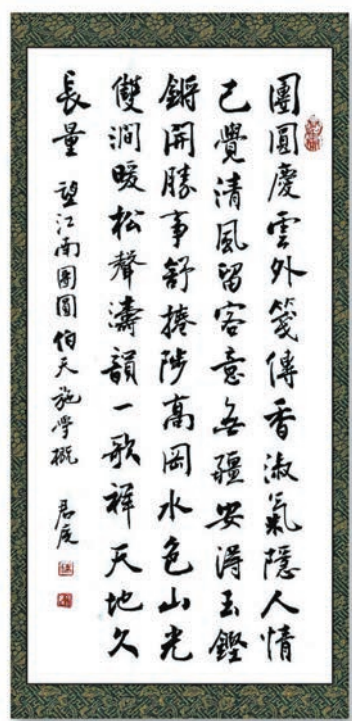 團圓慶雲外箋傳香淑氣隱人情
已覺清風留客意無疆安得玉鏗
鏘開勝事舒捲陟高岡水色山光
雙澗暖松聲濤韻一歌祥天地久
長量 望江南團圓 伯天施學概 君度